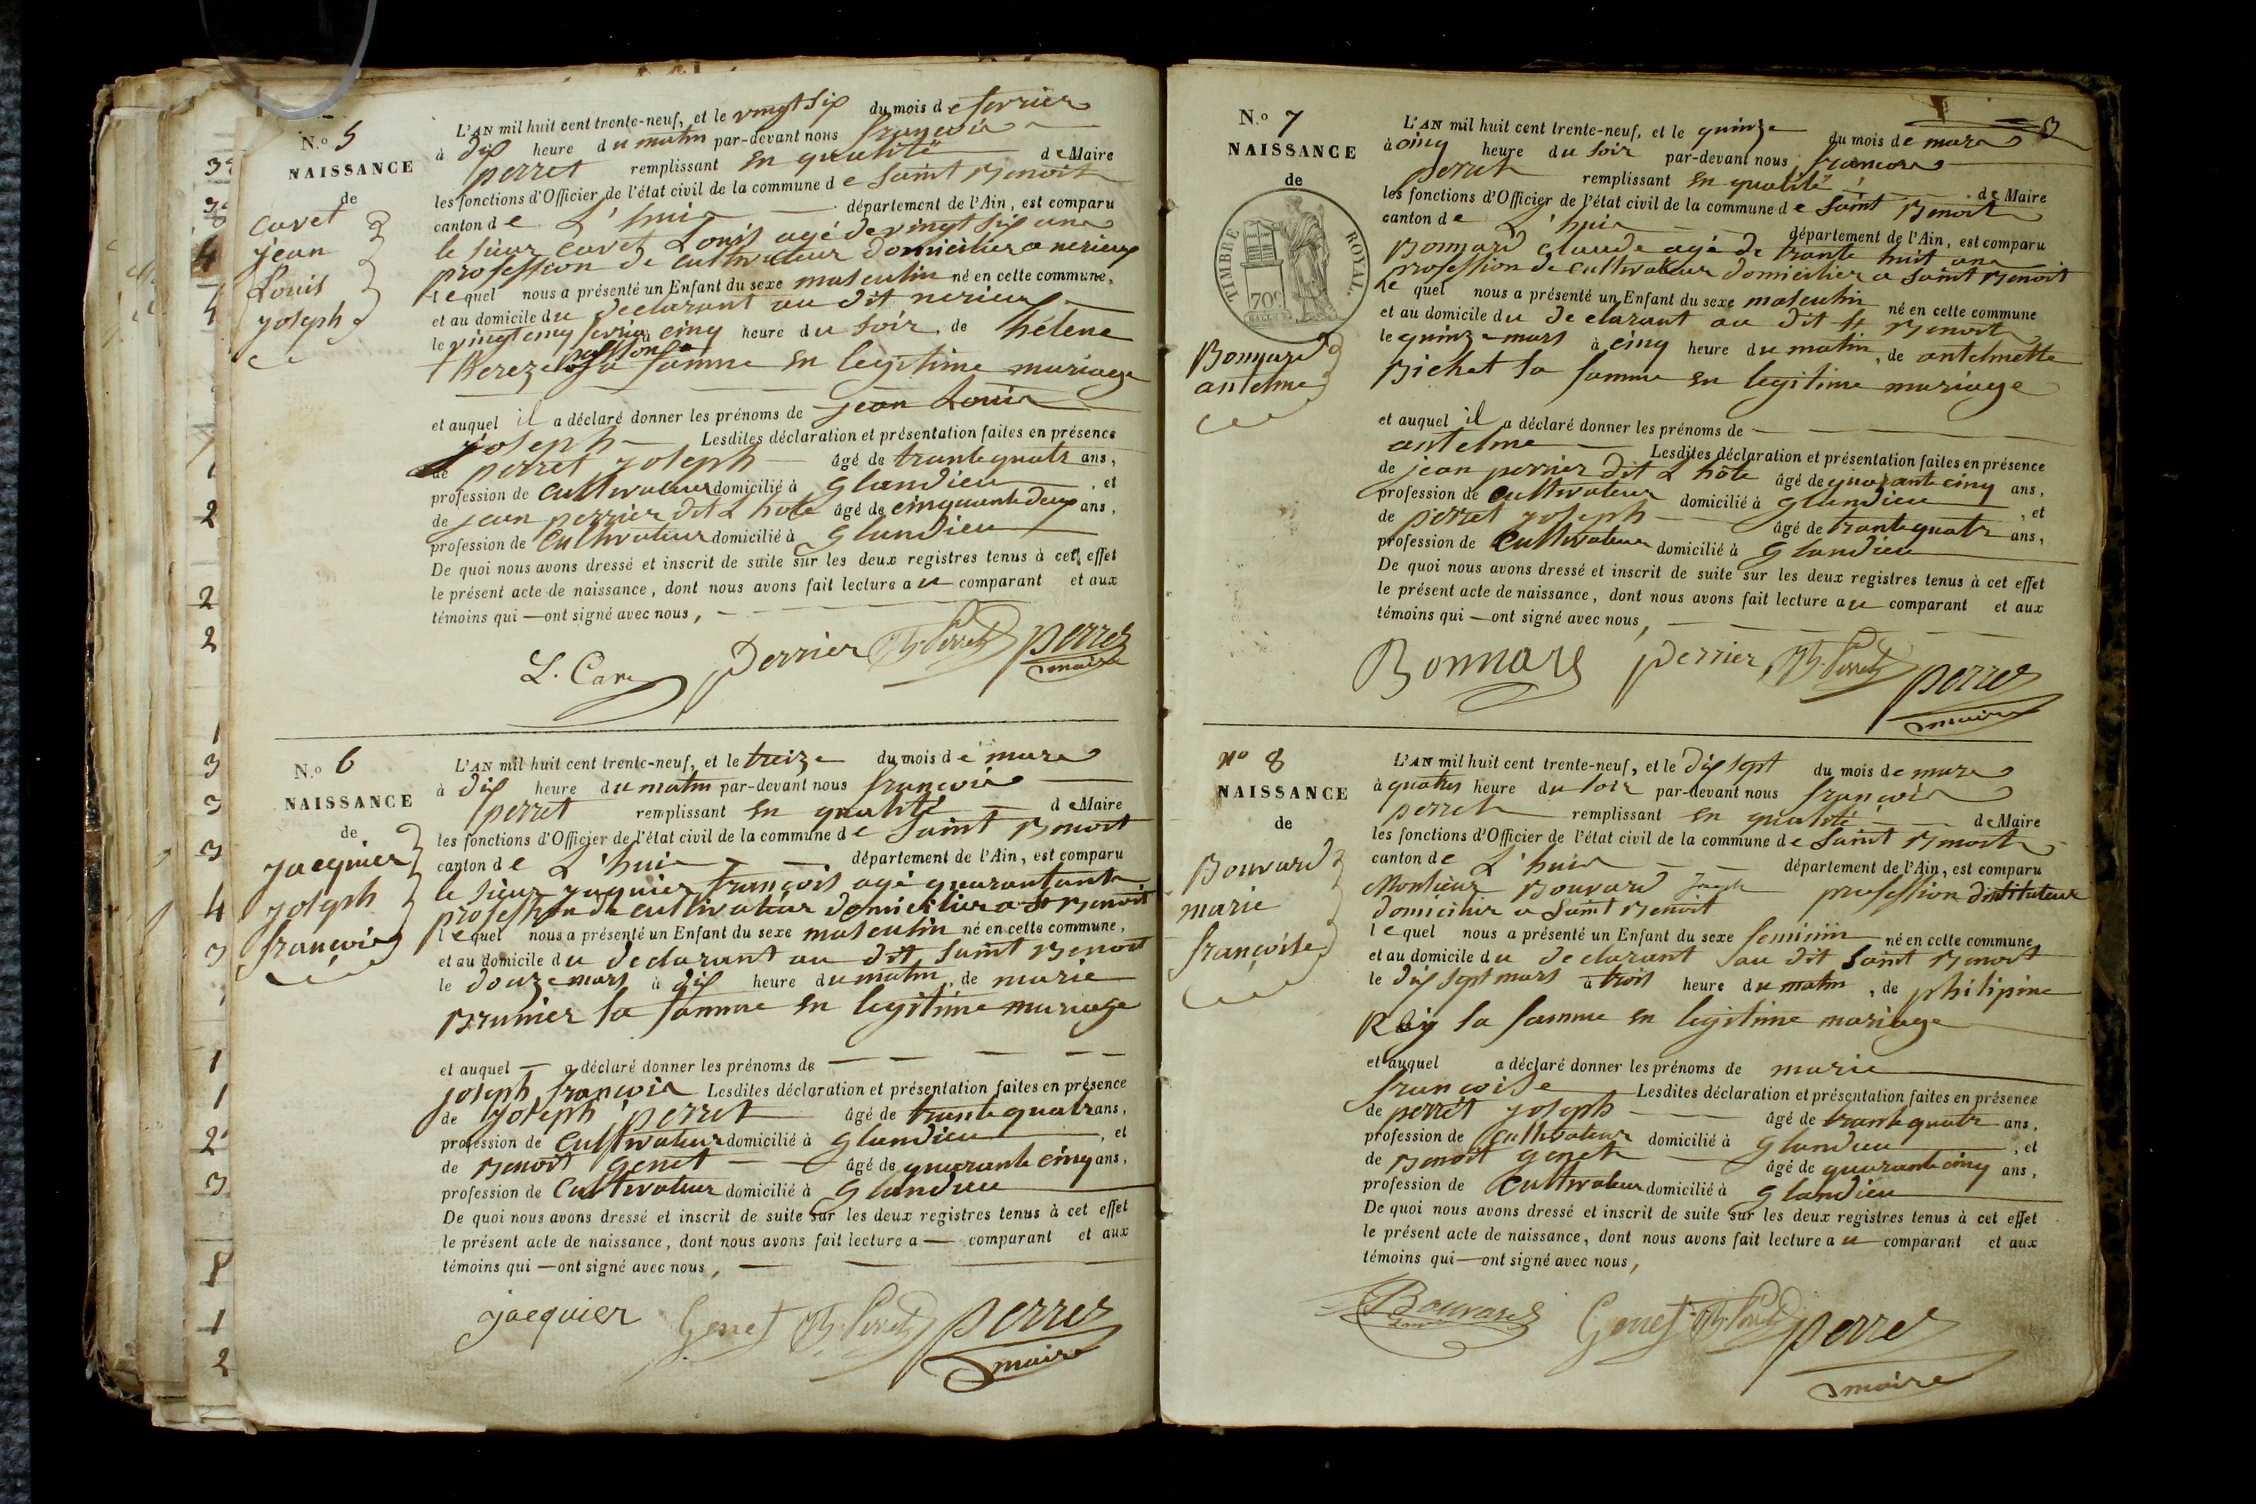 N.o 5
NAISSANCE
de
Cavet
jean
Louis
joseph
L'AN mil huit cent trente-neuf, et le vingt six du mois de fevrier
à dix heure du matin par-devant nous françois
perret remplissant en qualité de Maire
les fonctions d'Officier de l'état civil de la commune de saint Benoit
canton de L'huis département de l'Ain, est comparu
le sieur Cavet Louis agé de vingt six ans
profession de cultivateur domicilier a nerieux
lequel nous a présenté un Enfant du sexe masculin né en cette commune,
et au domicile du declarant au dit nerieux
le vingt cinq fevrier à cinq heure du soir, de hélene
sa famme en legitime mariage
et auquel il a déclaré donner les prénoms de jean Louis
joseph Lesdites déclaration et présentation faites en présence
de perret joseph âgé de trante quatr ans,
profession de cultivateur domicilié à glandieu, et
de jean perrier dit L hote âgé de cinquante deux ans,
profession de cultivateur domicilié à glandieu
De quoi nous avons dressé et inscrit de suite sur les deux registres tenus à cet effet
le présent acte de naissance, dont nous avons fait lecture au comparant et aux
témoins qui — ont signé avec nous,
L. Cavet perrier Jh. Perret perret
maire
N.o 6
NAISSANCE
de
jacquier
joseph
françois
L'AN mil huit cent trente-neuf, et le treize du mois de mars
à dix heure du matin par-devant nous françois
perret remplissant en qualité de Maire
les fonctions d'Officier de l'état civil de la commune de saint Benoit
canton de L'huis département de l'Ain, est comparu
le sieur jaquier françois agé quarantante
profession de cultivateur domicilier a st Benoit
lequel nous a présenté un Enfant du sexe masculin né en cette commune,
et au domicile du declarant au dit saint Benoit
le douze mars à dix heure du matin, de marie
Brunier sa famme en legitime mariage
et auquel — a déclaré donner les prénoms de
joseph françois Lesdites déclaration et présentation faites en présence
de joseph perret âgé de trante quatr ans,
profession de cultivateur domicilié à glandieu, et
de Benoit genet âgé de quarante cinq ans,
profession de cultivateur domicilié à glandieu
De quoi nous avons dressé et inscrit de suite sur les deux registres tenus à cet effet
le présent acte de naissance, dont nous avons fait lecture a — comparant et aux
témoins qui — ont signé avec nous,
jacquier Genet Jh. Perret perret
maire
3
N.o 7
NAISSANCE
de
TIMBRE ROYAL.
70c
Bonnard
antelme
L'AN mil huit cent trente-neuf, et le quinze du mois de mars
à cinq heure du soir par-devant nous françois
perret remplissant en qualité de Maire
les fonctions d'Officier de l'état civil de la commune de saint Benoit
canton de L'huis département de l'Ain, est comparu
Bonnard claude agé de trante huit ans
profession de cultivateur domicilier a saint Benoit
lequel nous a présenté un Enfant du sexe masculin né en cette commune
et au domicile du declarant au dit st Benoit
le quinze mars à cinq heure du matin, de antelmette
Bichet sa famme en legitime mariage
et auquel il a déclaré donner les prénoms de
antelme Lesdites déclaration et présentation faites en présence
de jean perrier dit L hôte âgé de quarante cinq ans,
profession de cultivateur domicilié à glandieu, et
de perret joseph âgé de trante quatr ans,
profession de cultivateur domicilié à glandieu
De quoi nous avons dressé et inscrit de suite sur les deux registres tenus à cet effet
le présent acte de naissance, dont nous avons fait lecture au comparant et aux
témoins qui — ont signé avec nous,
Bonnard perrier Jh. Perret perret
maire
No 8
NAISSANCE
de
Bouvard
marie
françoise
L'AN mil huit cent trente-neuf, et le dix sept du mois de mars
à quatres heure du soir par-devant nous françois
perret remplissant en qualité de Maire
les fonctions d'Officier de l'état civil de la commune de saint Benoit
canton de L'huis département de l'Ain, est comparu
Monsieur Bouvard profession d'instituteur
domicilier a saint Benoit
lequel nous a présenté un Enfant du sexe feminin né en cette commune
et au domicile du declarant au dit saint Benoit
le dix sept mars à trois heure du matin, de philipine
Rey sa famme en legitime mariage
et auquel a déclaré donner les prénoms de marie
françoise Lesdites déclaration et présentation faites en présence
de perret joseph âgé de trante quatr ans,
profession de cultivateur domicilié à glandieu, et
de Benoit genet âgé de quarante cinq ans,
profession de cultivateur domicilié à glandieu
De quoi nous avons dressé et inscrit de suite sur les deux registres tenus à cet effet
le présent acte de naissance, dont nous avons fait lecture au comparant et aux
témoins qui — ont signé avec nous,
Bouvard Genet Jh. Perret perret
maire